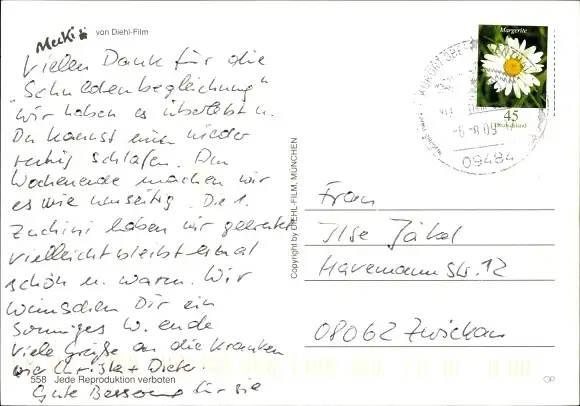 Mecki von Diehl-Film
Vielen Dank für die
"Schuldenbegleichung"
Wir haben es überlebt u.
Du kannst nun wieder
ruhig schlafen. Am
Wochenende machen wir
es wie umseitig. Die 1.
Zuchini haben wir geerntet
vielleicht bleibt es mal
schön u. warm. Wir
wünschen Dir ein
Sonniges W.ende
Viele Grüße an die Kranken
wie Christa + Dieter.
558 Jede Reproduktion verboten
Gute Besserung für sie
Copyright by DIEHL-FILM, MÜNCHEN
Margerite
45
Deutschland
08450
Frau
Ilse Jäkel
Havemannstr. 12
08062 Zwickau